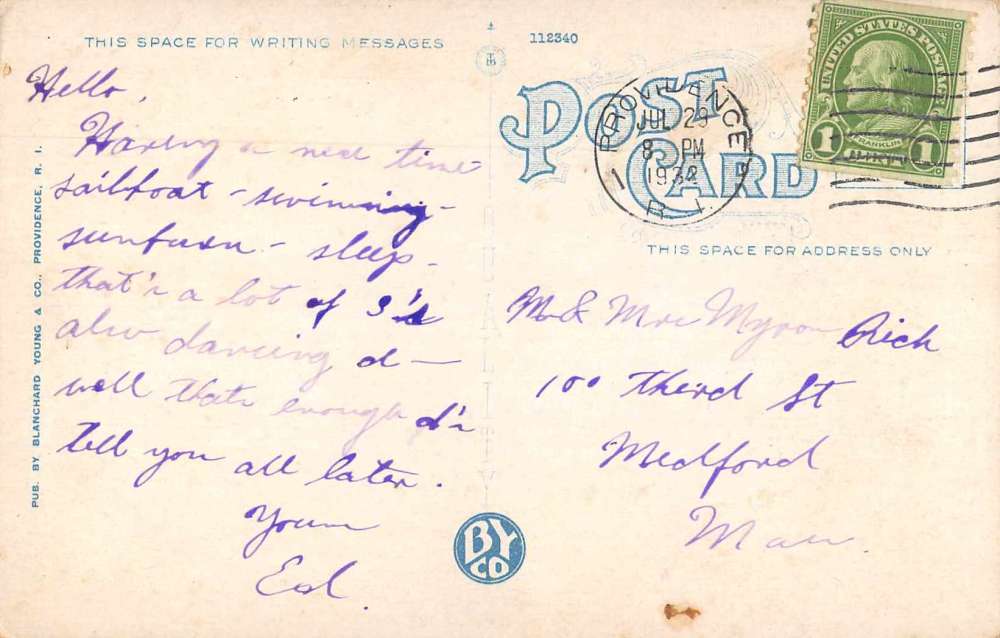 THIS SPACE FOR WRITING MESSAGES
112340
POST CARD
PROVIDENCE
JUL 29
8 PM
1932
R. I.
1
UNITED STATES POSTAGE
FRANKLIN
1 1
THIS SPACE FOR ADDRESS ONLY
PUB. BY BLANCHARD YOUNG & CO., PROVIDENCE, R. I.
Hello,
Having a nice time
sailboat - swimming -
- sleep -
that's a lot of s's
also dancing d -
well thats enough d's
tell you all later.
Yours
Ed.
Mr & Mrs Myron Rich
100 Third St
Medford
Mass.
BY
CO